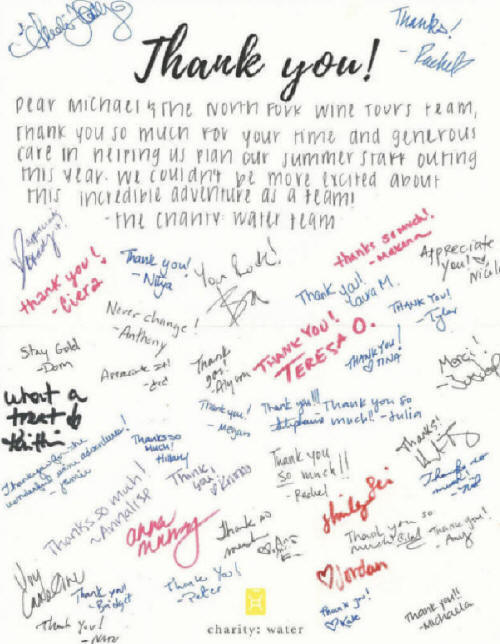 Thanks!
- Rachel
Thank you!
Dear Michael & The North Fork Wine Tours team,
Thank you so much for your time and generous
care in helping us plan our summer staff outing
this year. We couldn't be more excited about
this incredible adventure as a team!
- the charity: water team
thank you!
- Ciera
Thank you!
- Nitya
You Rock!
thanks so much!
Appreciate
you!
Nicole
Thank you!
Laura M.
THANK YOU!
- Tyler
Never change!
- Anthony
Stay Gold
- Dom
Appreciate it!
Thank
you!
THANK YOU!
TERESA O.
THANK YOU!
♡ TINA
Merci!
What a
treat
Thank you!
- Megan
Thank you!!!
Stephanie
Thank you so
much! - Julia
Thanks!
Thank you for the
wonderful wine adventures!
- Jamie
Thanks so
much!
Hillary
Thank you
so much!!
- Rachel
Thanks so much!
- Annalise
Thank
you,
Thanks so
much!
anna
Thank so
much
Shirley
Thank you so
much
Thank you!
- Amy
♡ Jordan
Caroline
Thank you!
- Bridget
Thank You!
- Peter
Thank you!
♡ Kate
Thank you!!
- Michaela
Thank You!
charity: water